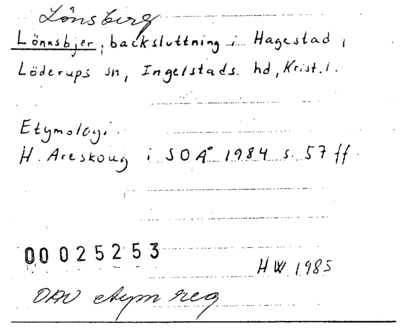 Lönsberg
Lönnsbjer, backsluttning i Hagestad,
Löderups sn, Ingelstads hd, Krist. l.
Etymologi.
H. Areskoug i SOÅ 1984 s. 57 ff.
00025253
HW 1985
OAU etym reg